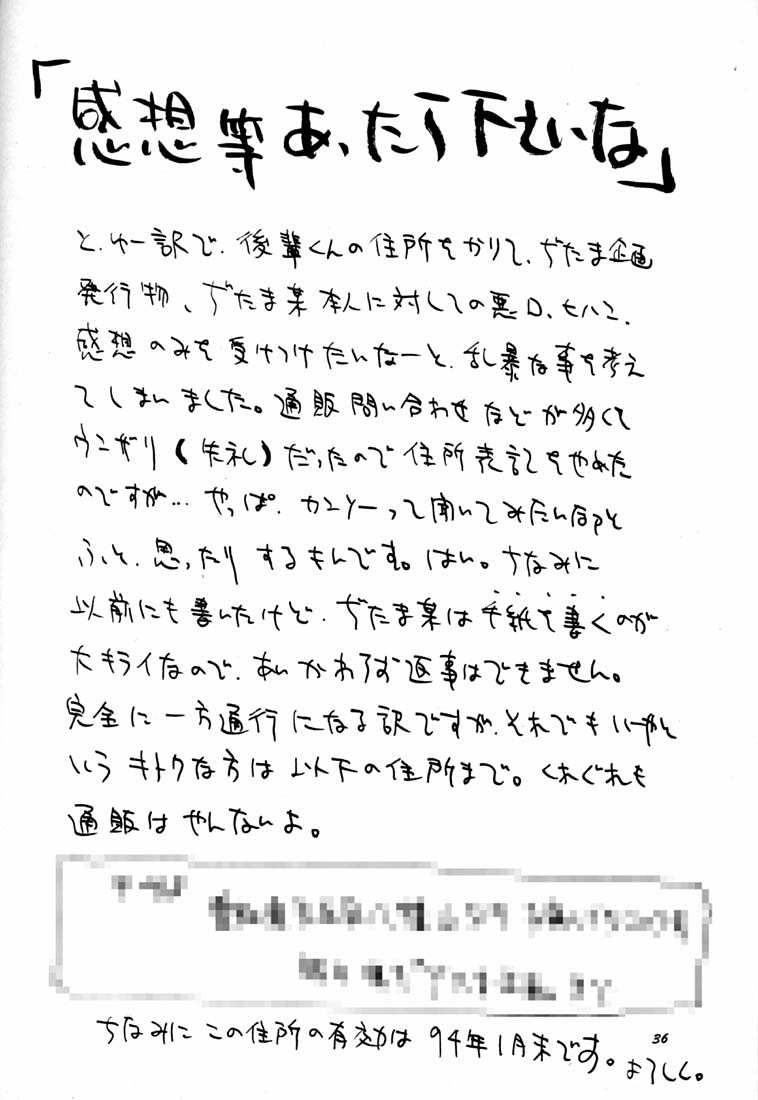 「感想等あったら下せいな」
と、ゆー訳で、後輩くんの住所をかりて、ぢたま企画
発行物、ぢたま某本人に対しての悪口、ヒハン、
感想のみを受けつけたいなーと、乱暴な事を考え
てしまいました。通販問い合わせなどが多くて
ウンザリ(失礼)だったので住所表記をやめた
のですが…やっぱ、カンソーって聞いてみたい
ふっと、思ったりするもんです。はい。ちなみに
以前にも書いたけど、ぢたま某は手紙を書くのが
大キライなので、あいかわらず返事はできません。
完全に一方通行になる訳ですが、それでもいーやと
いうキトクな方は以下の住所まで。くれぐれも
通販はやんないよ。
ちなみにこの住所の有効は94年1月末です。
よろしく。
36